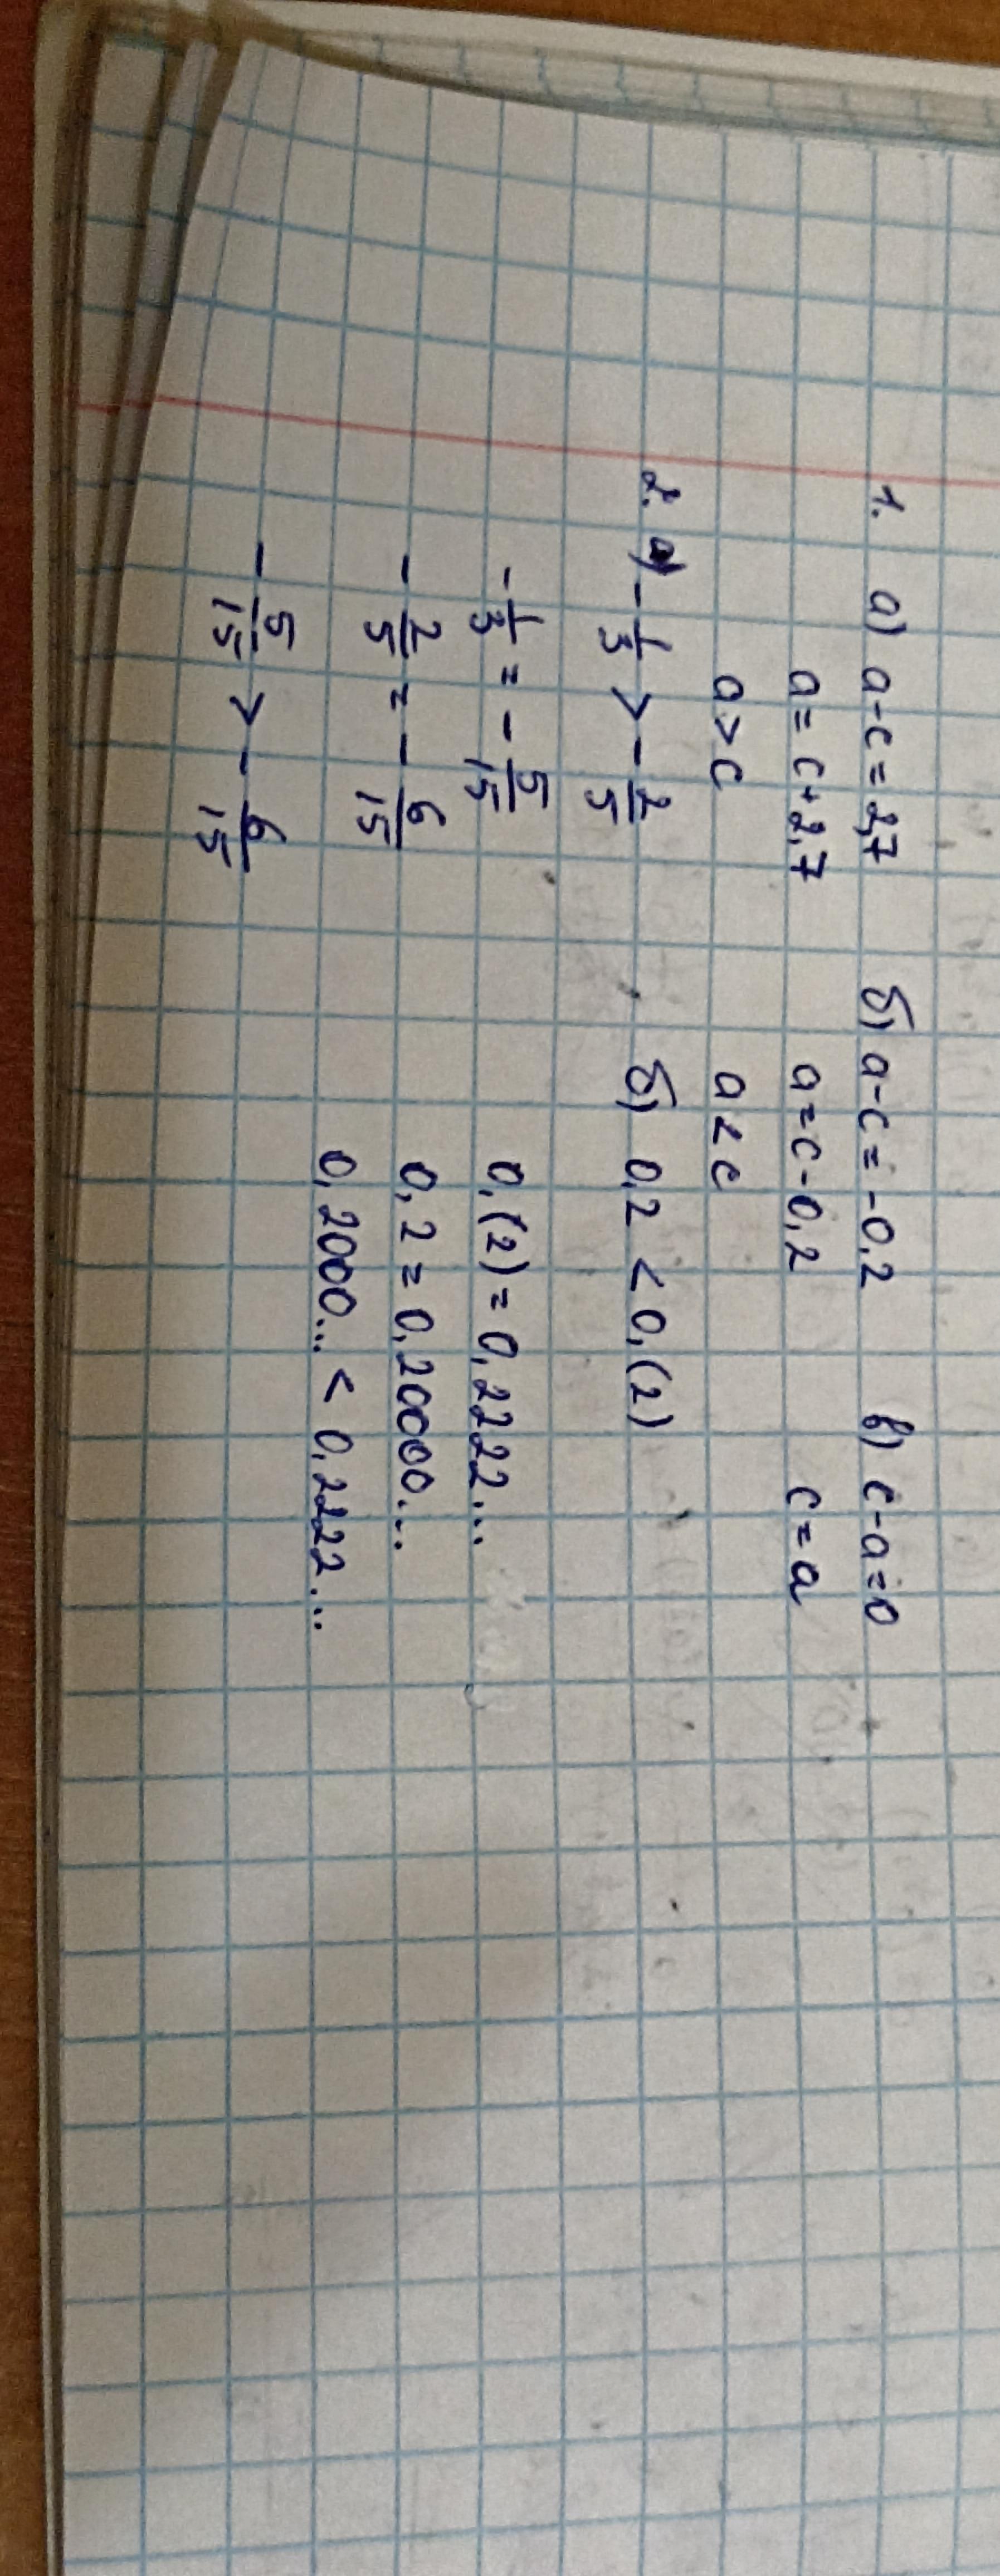 1. а) a-c=2,7 б) a-c=-0,2 в) c-a=0
a=c+2,7 a=c-0,2 c=a
a>c a<c
2. а) -1/3 > -2/5 б) 0,2 < 0,(2)
-1/3 = -5/15 0,(2)=0,2222...
-2/5 = -6/15 0,2=0,20000...
-5/15 > -6/15 0,2000... < 0,2222...